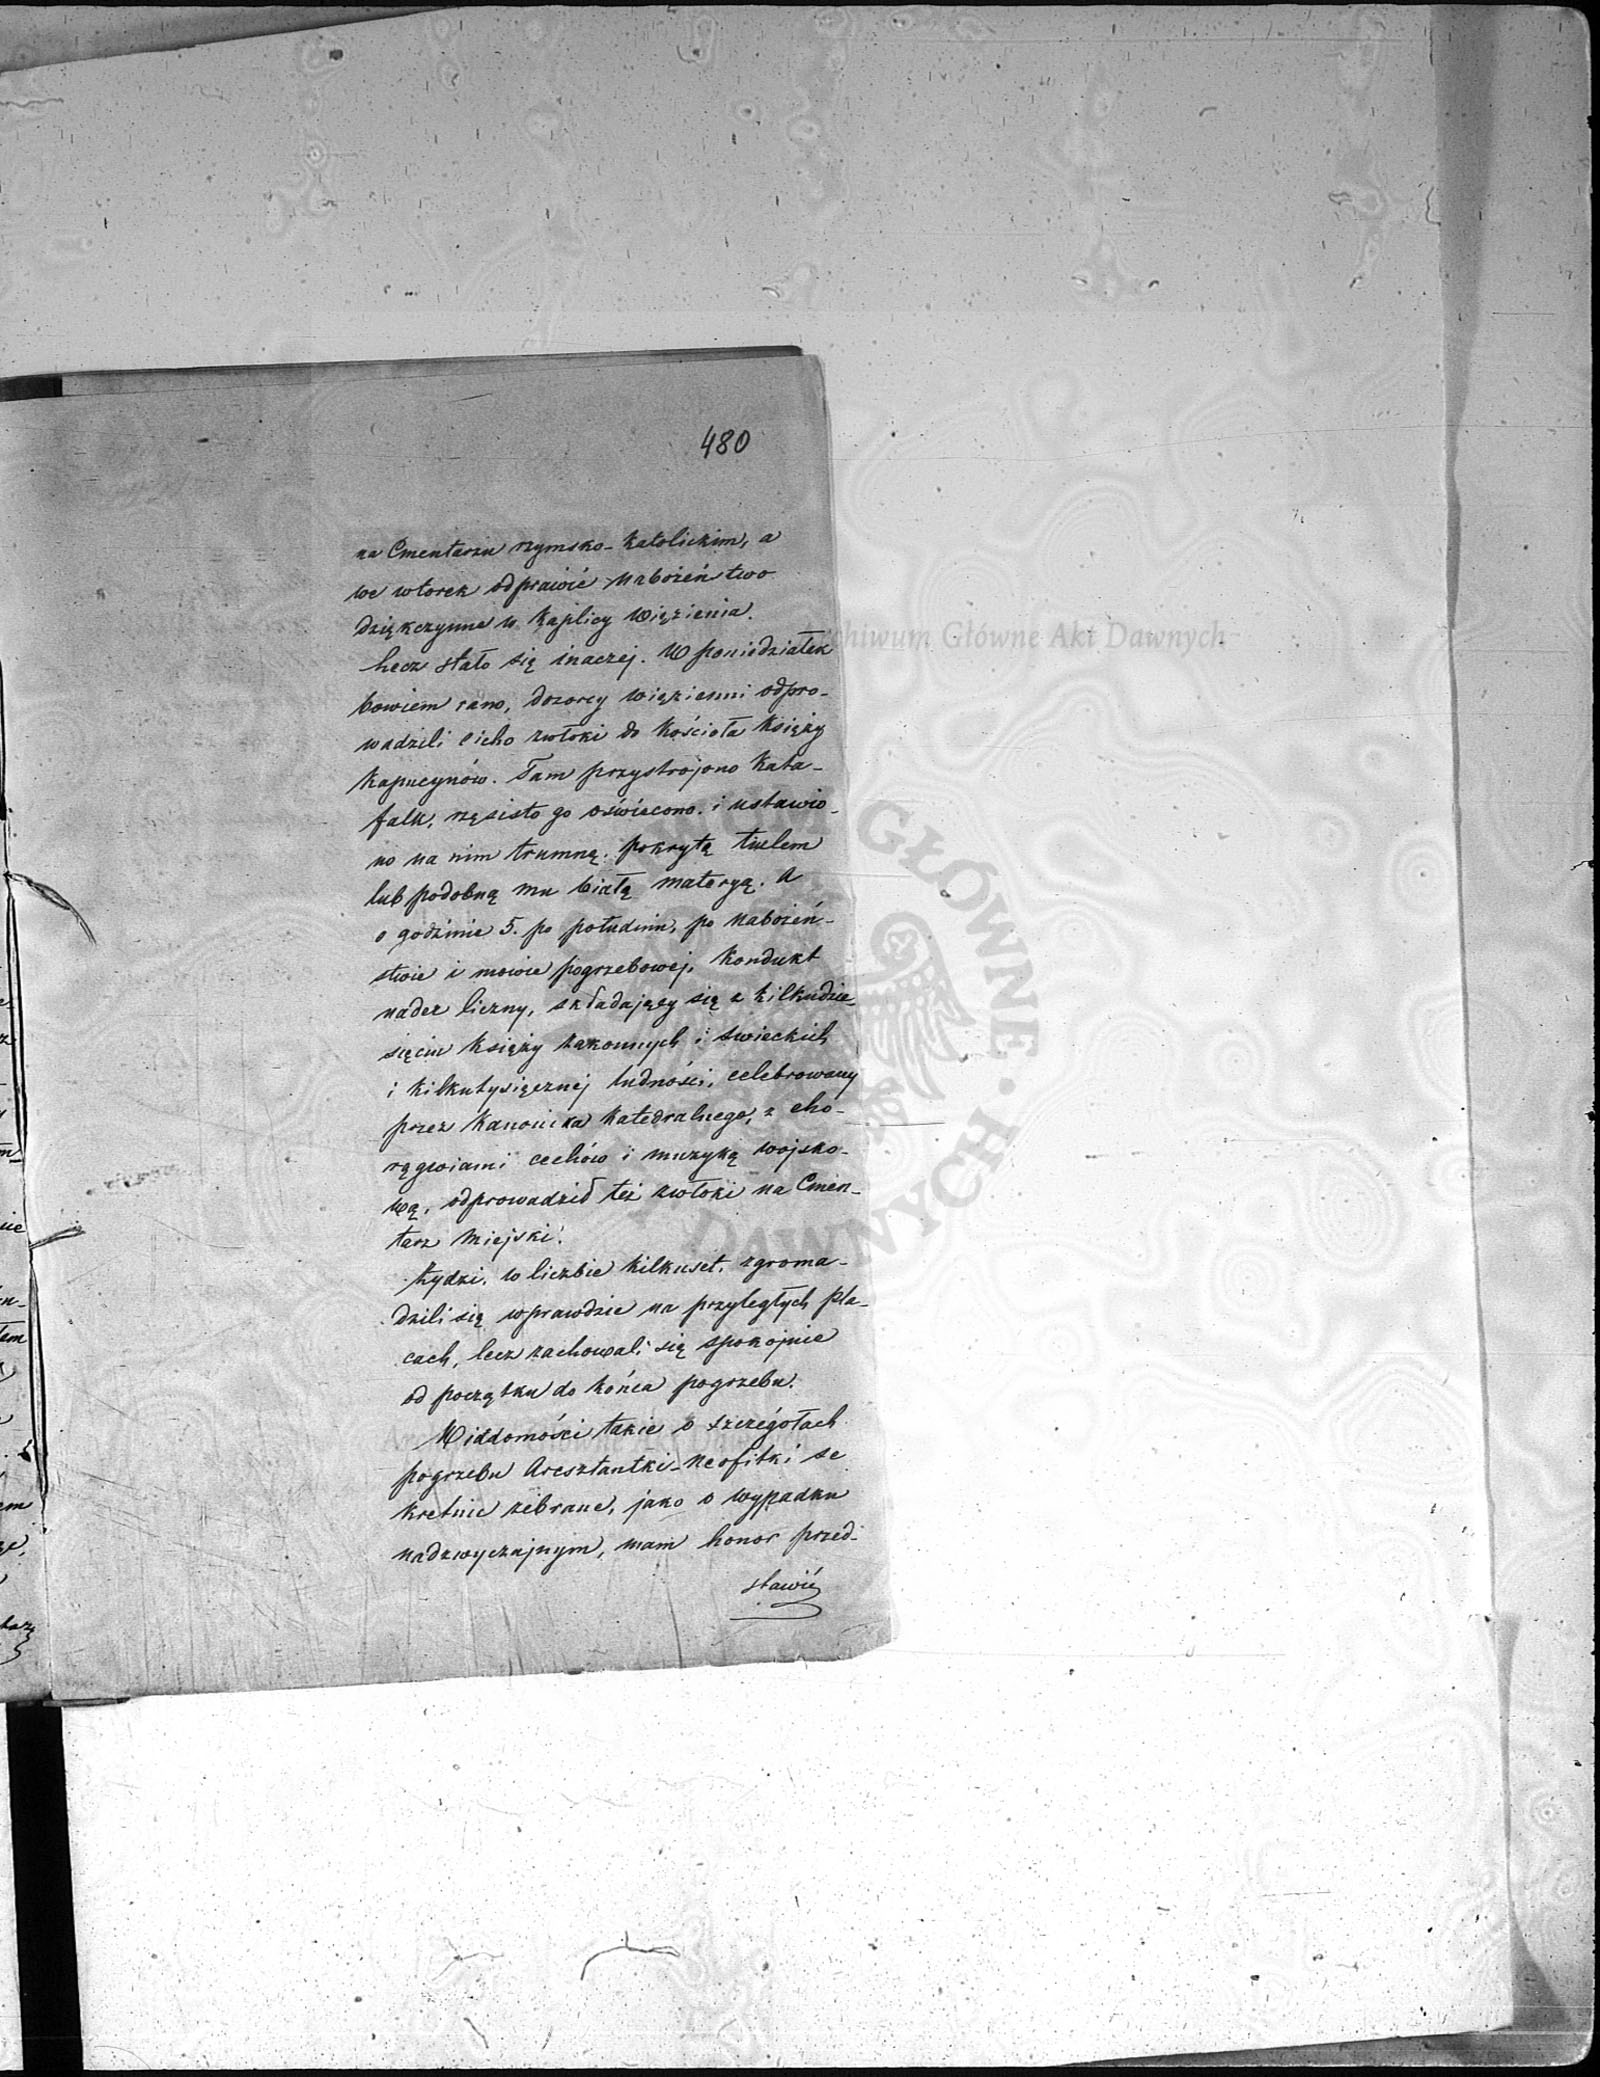 480
na Cmentarzu rzymsko-katolickim, a
we wtorek odprawić nabożeństwo
dziękczynne w kaplicy więzienia.
Lecz stało się inaczej. W poniedziałek
bowiem rano, dozorcy więzienni odpro-
wadzili cicho zwłoki do Kościoła Księży
Kapucynów. Tam przystrojono Kata-
falk, rzęsisto go oświecono i ustawio-
no na nim trumnę, pokrytą tiulem
lub podobną mu białą materyą. A
o godzinie 5. po południu, po nabożeń-
stwie i mowie pogrzebowej, Kondukt
nader liczny, składający się z kilkudzie-
sięciu Księży zakonnych i swieckich
i kilkutysięcznej ludności, celebrowany
przez Kanonika Katedralnego, z cho-
rągwiami cechów i muzyką wojsko-
wą, odprowadził też zwłoki na Cmen-
tarz Miejski.
Żydzi, w liczbie kilkuset, zgroma-
dzili się wprawdzie na przyległych pla-
cach, lecz zachowali się spokojnie
od początku do końca pogrzebu.
Wiadomości takie o szczegółach
pogrzebu Aresztantki-Neofitki se
kretnie zebrane, jako o wypadku
nadzwyczajnym, mam honor przed-
stawić
Archiwum Główne Akt Dawnych
GŁÓWNE
DAWNYCH